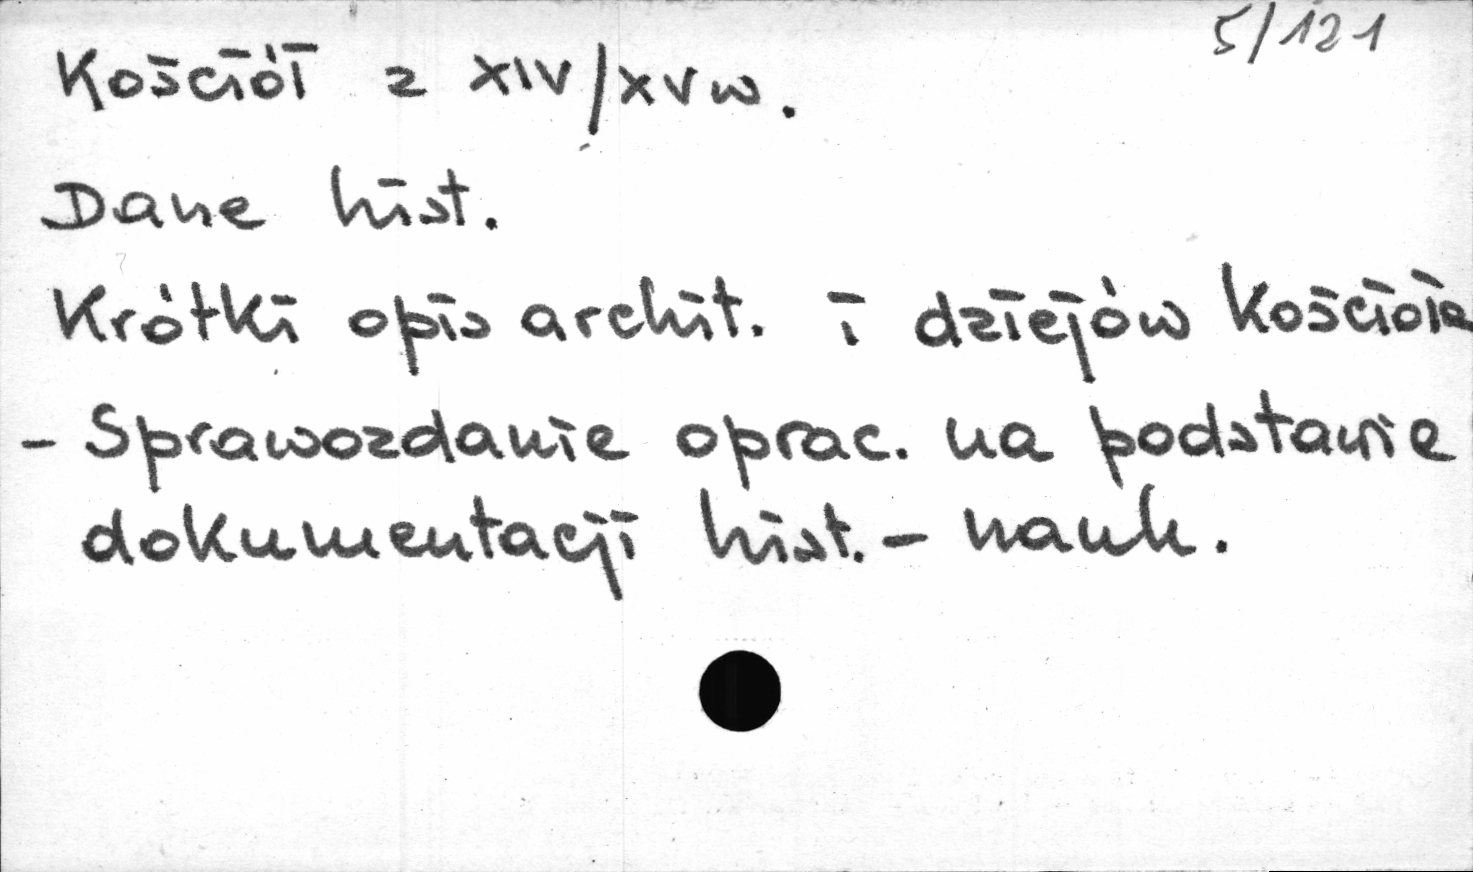 5/121
Kościół z XIV/XV w.
Dane hist.
Krótki opis archit. i dziejów kościoła
- Sprawozdanie oprac. na podstawie
dokumentacji hist. - nauk.